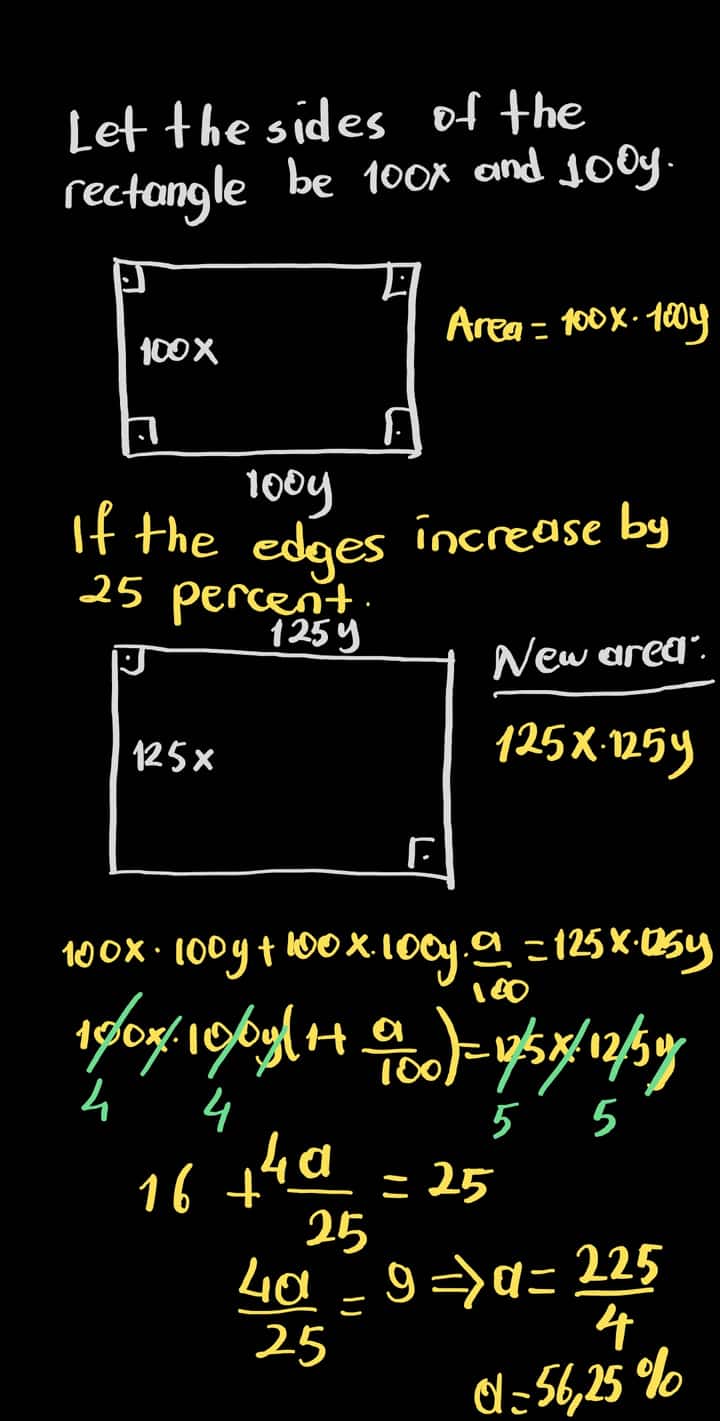 Let the sides of the
rectangle be 100x and 100y.
100x
Area = 100x.100y
100y
If the edges increase by
25 percent.
125y
New area:
125x
125x.125y
100x.100y + 100x.100y.a/100 = 125x.125y
100x.100y(1+ a/100) = 125x.125y
4 4 5 5
16 + 4a/25 = 25
4a/25 = 9 => a = 225/4
a = 56,25 %